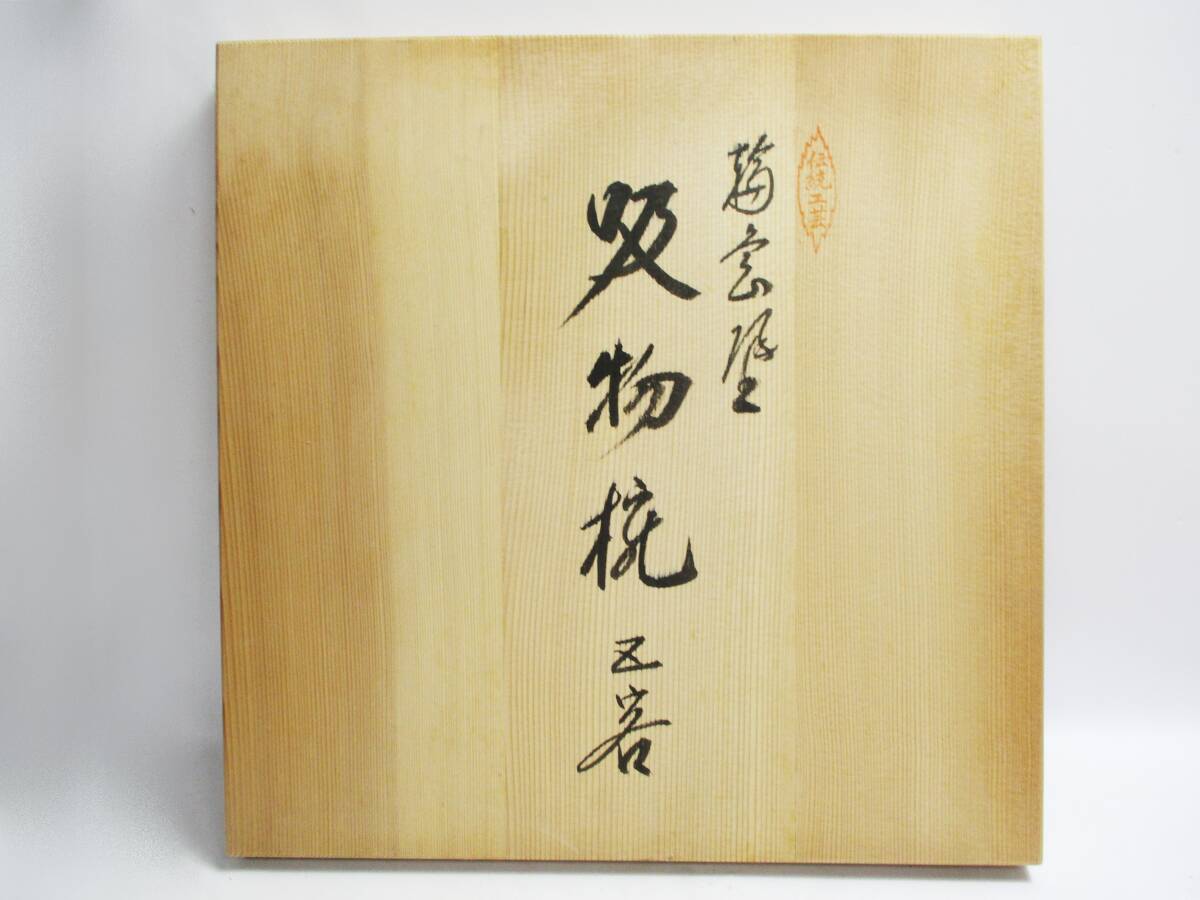 伝統工芸
輪島塗
吸物椀 五客